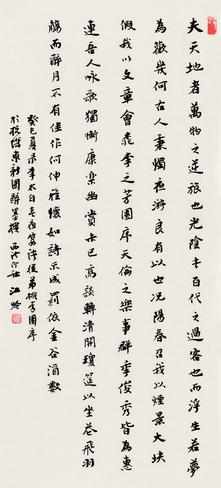 夫天地者万物之逆旅也光陰者百代之過客也而浮生若夢
為歡幾何古人秉燭夜遊良有以也况陽春召我以煙景大塊
假我以文章會桃李之芳園序天倫之樂事群季俊秀皆為惠
連吾人咏歌獨慚康樂幽賞未已高談轉清開瓊筵以坐花飛羽
觴而醉月不有佳作何伸雅懷如詩不成罰依金谷酒數
癸巳夏录李太白春夜宴諸從弟桃李園序